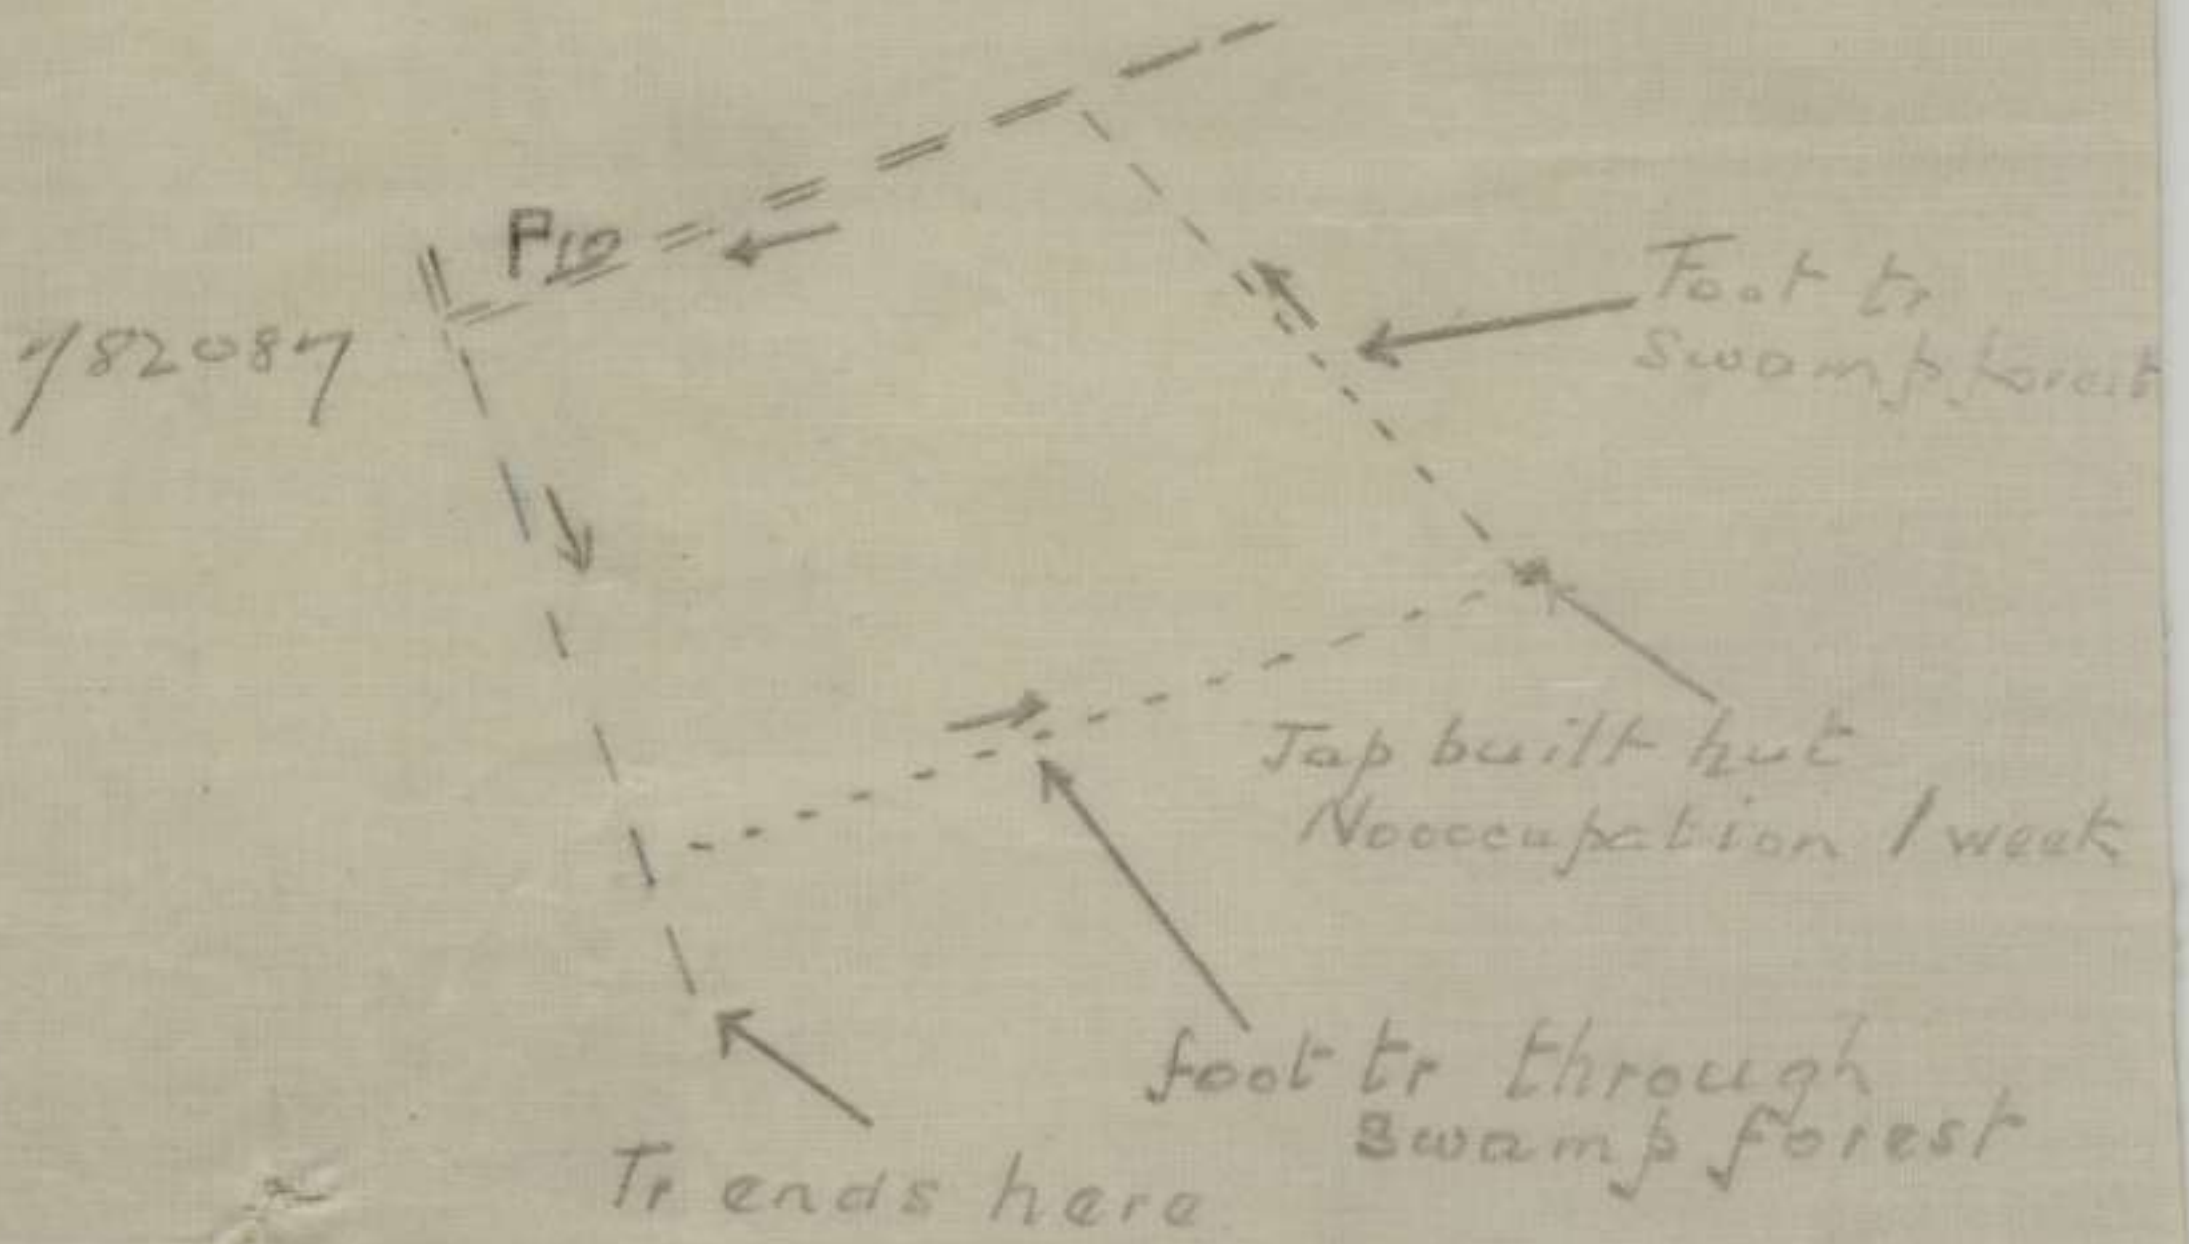 P10
Foot tr
Swamp forest
782087
Jap built hut
No occupation 1 week
foot tr through
swamp forest
Tr ends here